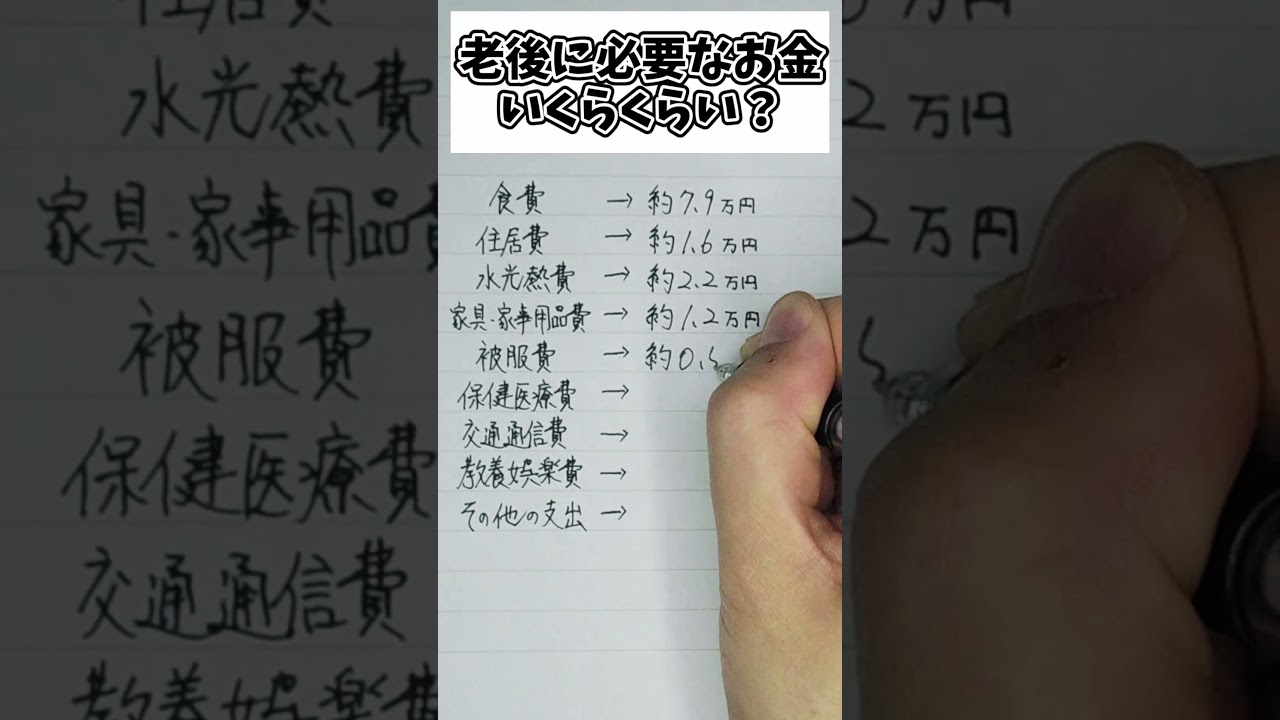 老後に必要なお金
いくらくらい？
食費 → 約7.9万円
住居費 → 約1.6万円
水光熱費 → 約2.2万円
家具・家事用品費 → 約1.2万円
被服費 → 約0.
保健医療費 →
交通通信費 →
教養娯楽費 →
その他の支出 →